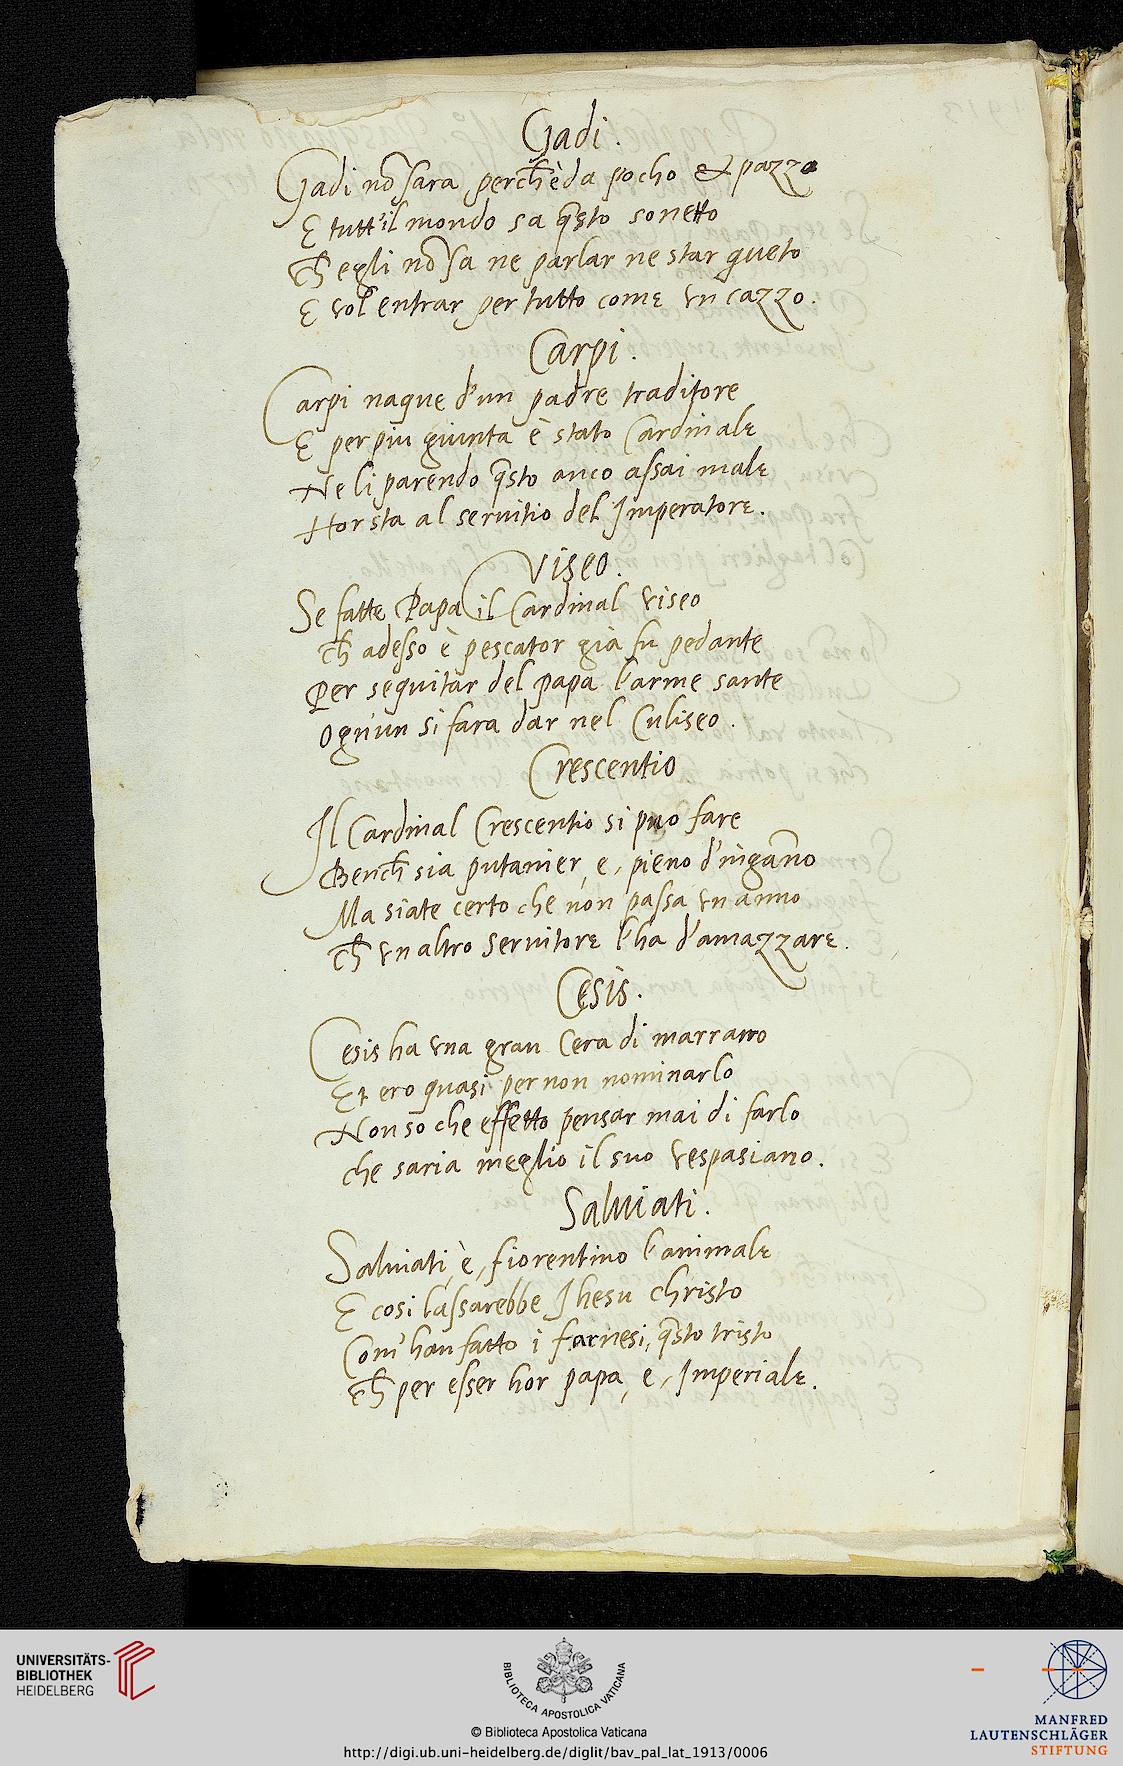 Gadi.
Gadi nō sara perch̄ è da pocho et pazzo
E tutt'il mondo sa q̄sto sonetto
Ch̄ egli nō sa ne parlar ne star queto
E vol entrar per tutto come vn cazzo.
Carpi.
Carpi naque d'un padre traditore
E per piu giunta è stato Cardinale
Ne li parendo q̄sto anco assai male
Hor sta al seruitio del Imperatore.
Viseo.
Se fatte Papa il Cardinal viseo
ch̄ adesso è pescator già fu pedante
Per seguitar del papa l'arme sante
Ogn'un si fara dar nel Culiseo.
Crescentio
Il Cardinal Crescentio si puo fare
Bench̄ sia putanier, e, pieno d'ingan̄o
Ma siate certo che non passa vn anno
ch̄ vn altro seruitore l'ha d'amazzare.
Cesis.
Cesis ha vna gran cera di marrano
Et ero quasi per non nominarlo
Non so che effetto pensar mai di farlo
che saria meglio il suo vespasiano.
Saluiati.
Saluiati, è, fiorentino l'animale
E cosi lassarebbe Jhesu christo
Com' han fatto i farnesi, q̄sto tristo
Ch̄ per esser hor papa, e, Imperiale.
UNIVERSITÄTS-
BIBLIOTHEK
HEIDELBERG
BIBLIOTECA APOSTOLICA VATICANA
© Biblioteca Apostolica Vaticana
http://digi.ub.uni-heidelberg.de/diglit/bav_pal_lat_1913/0006
MANFRED
LAUTENSCHLÄGER
STIFTUNG